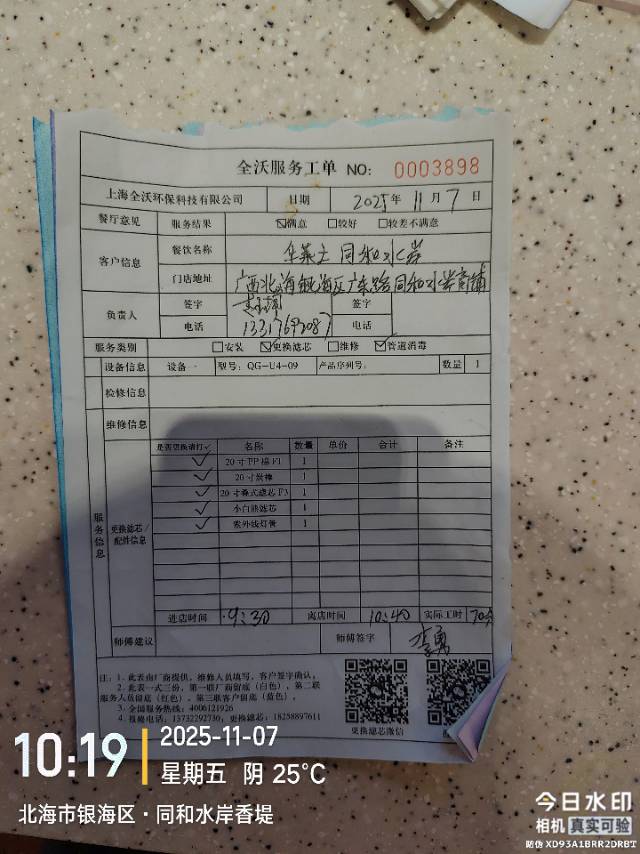 全沃服务工单 NO: 0003898
上海全沃环保科技有限公司 日期 2025年 11月 7日
餐厅意见 服务结果 ☑满意 □较好 □较差不满意
客户信息 餐饮名称 华莱士 同和水岸
门店地址 广西北海银海区广东路同和水岸商铺
负责人 签字 签字
电话 13317692087 电话
服务类别 □安装 ☑更换滤芯 □维修 ☑管道消毒
设备信息 设备一 型号: QG-U4-09 产品序列号: 数量 1
检修信息
维修信息
服务信息
是否更换请打✓ 名称 数量 单价 合计 备注
✓ 20寸PP棉F1 1
✓ 20寸炭棒 1
✓ 20寸叠式滤芯F3 1
更换滤芯/配件信息
✓ 小白熊滤芯 1
✓ 紫外线灯管 1
进店时间 9:30 离店时间 10:40 实际工时 70分
师傅建议 师傅签字 李勇
注: 1、此表由厂商提供, 维修人员填写, 客户签字确认;
2、此表一式三份, 第一联厂商留底(白色), 第二联
服务人员留底(红色), 第三联客户留底(蓝色)。
3、全国服务热线: 4006121926
4、报修电话: 13732292730, 更换滤芯: 18258897611
更换滤芯微信
10:19
2025-11-07
星期五 阴 25°C
北海市银海区·同和水岸香堤
今日水印
相机 真实可验
防伪 XD93A1BRR2DRBT